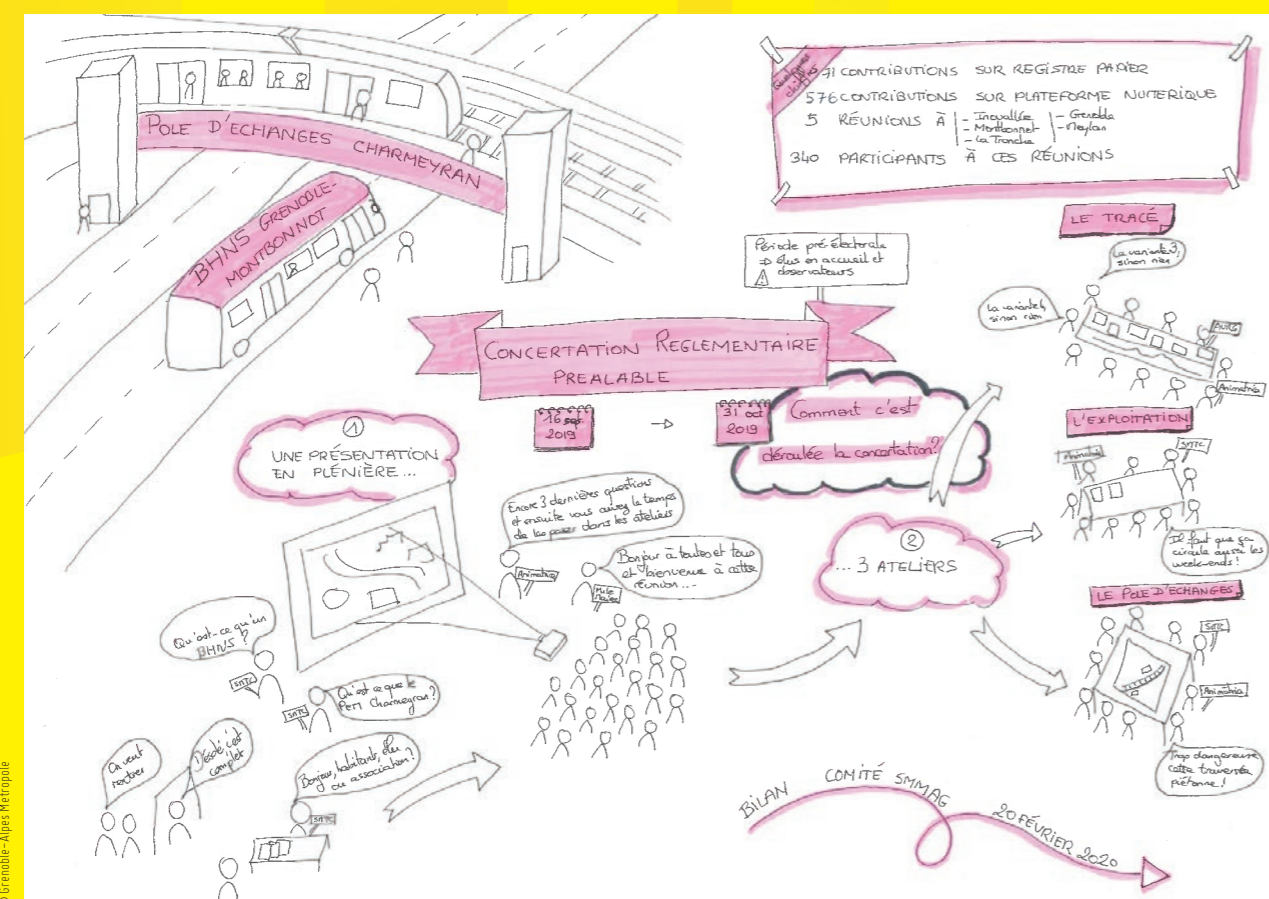 POLE D'ECHANGES CHARMEYRAN
BHNS GRENOBLE-
MONTBONNOT
Quelques
chiffres
71 CONTRIBUTIONS SUR REGISTRE PAPIER
576 CONTRIBUTIONS SUR PLATEFORME NUMERIQUE
5 RÉUNIONS À
- Inovallée
- Montbonnot
- La Tronche
- Grenoble
- Meylan
340 PARTICIPANTS À CES RÉUNIONS
Période pré-électorale
⇒ élus en accueil et
⚠ observateurs
CONCERTATION REGLEMENTAIRE
PREALABLE
16 sept
2019
→
31 oct
2019
Comment c'est
déroulée la concertation?
①
UNE PRÉSENTATION
EN PLÉNIÈRE...
Encore 3 dernières questions
et ensuite vous aurez le temps
de les poser dans les ateliers
Animatrice
Bonjour à toutes et tous
et bienvenue à cette
réunion...
Maire
Qu'est-ce qu'un
BHNS ?
SMTC
Qu'est ce que le
PEM Charmeyran?
SMTC
On veut
rentrer
Désolé c'est
complet
Bonjour, habitants, élu
ou association?
SMTC
②
... 3 ATELIERS
LE TRACÉ
La variante 3,
sinon rien
La variante 1,
sinon rien
AURG
Animatrice
L'EXPLOITATION
Animatrice
SMTC
Il faut que ça
circule aussi les
week-ends!
LE POLE D'ECHANGES
SMTC
Animatrice
Trop dangereuse
cette traversée
piétonne!
BILAN COMITÉ SMMAG 20 FÉVRIER 2020
© Grenoble-Alpes Métropole